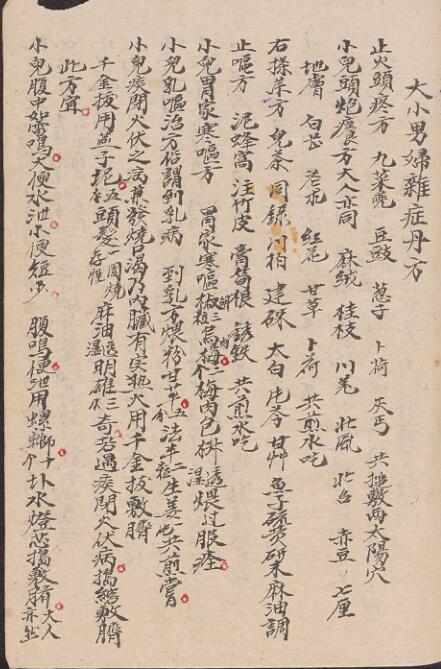 大小男婦雜症丹方
止火頭疼方 九菜 豆豉 葱子 卜荷 灰丐 共搥敷两太陽穴
小兒頭炮 方大人亦同 麻絨 桂枝 川羌 北風 赤豆 七厘
地膚 白芷 红花 甘草 卜荷 共煎水吃
右搽药方 兒茶 同绿 川柏 建硃 大白 甘艸 魚子硫黄 研末麻油調
止嘔方 泥蜂窩 注竹皮 膏 根 銹鉄 共煎水吃
小兒胃家寒嘔方 胃家寒嘔椒 三粒 烏梅二个 梅肉包椒 湿透煨过服痊
小兒乳嘔治方俗謂到乳病 到乳方煨粉甘草五 法半二 粒生姜 共煎嘗
小兒痰閉火伏之病兼發燒渴乃内臟有实熱火用千金拔敷臍
千金拔用盖子坭五 頭髪一團燒存性 麻油湿透明碓 三 奇若遇痰閉火伏病搗結敷臍
此方宜
小兒腹中如雷鳴大便水泄小便短少 腹鳴便泄用螺螄十个 圤水燈芯搗敷臍大人亦然